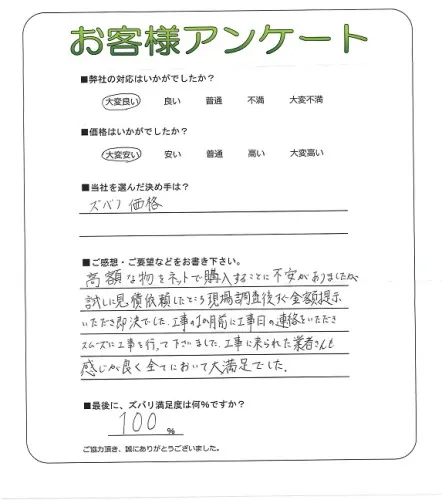 お客様アンケート
■弊社の対応はいかがでしたか?
大変良い 良い 普通 不満 大変不満
■価格はいかがでしたか?
大変安い 安い 普通 高い 大変高い
■当社を選んだ決め手は?
ズバリ価格
■ご感想・ご要望などをお書き下さい。
高額な物をネットで購入することに不安がありましたが
試しに見積依頼したところ現場調査後すぐ金額提示
いただき即決でした.工事の1ヶ月前に工事日の連絡をいただき
スムーズに工事を行って下さいました.工事に来られた業者さんも
感じが良く全てにおいて大満足でした.
■最後に、ズバリ満足度は何%ですか?
100 %
ご協力頂き、誠にありがとうございました。